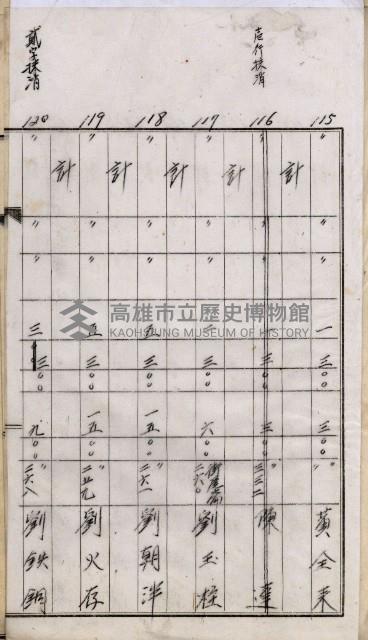 壱行抹消
貳字抹消
115
〃
計
〃
〃
一
三〇〇
三〇〇
〃
黃全來
116
〃
計
〃
〃
三〇〇
三〇〇
〃
三三二
陳達
117
〃
計
〃
〃
二
三〇〇
六〇〇
二六〇
劉玉柱
118
〃
計
〃
〃
五
三〇〇
一五〇〇
〃
二六一
劉朝洋
119
〃
計
〃
〃
五
三〇〇
一五〇〇
〃
二五九
劉火存
120
〃
計
〃
〃
三
三〇〇
九〇〇
〃
二六八
劉鉄銅
高雄市立歷史博物館
KAOHSIUNG MUSEUM OF HISTORY